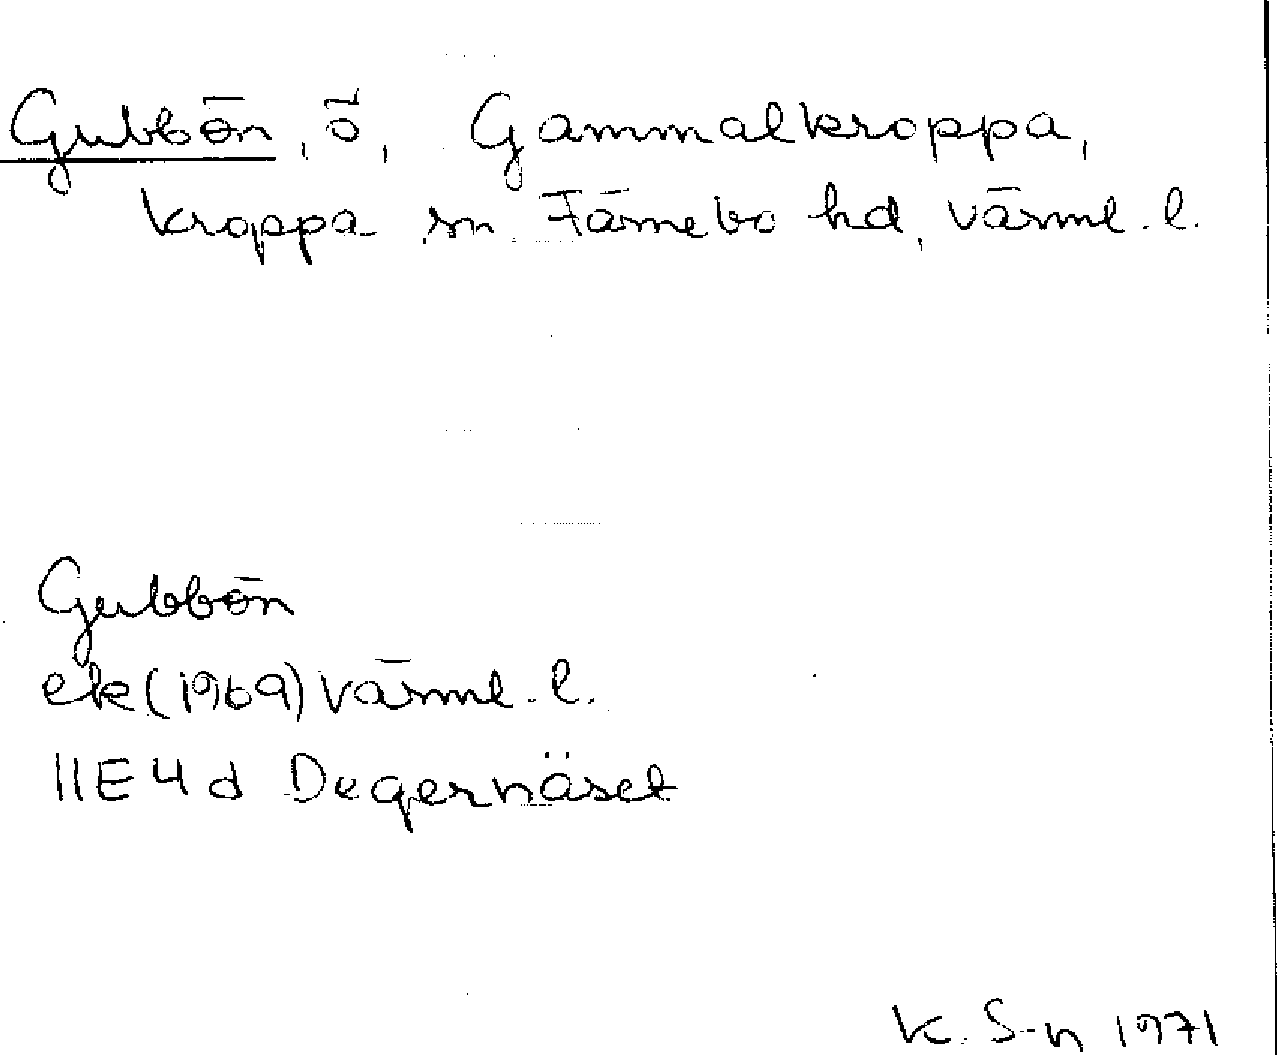 Gubbön, ö, Gammalkroppa,
Kroppa sn. Färnebo hd, Värml. l.
Gubbön
ek (1969) Värml. l.
11E4d Degernäset
K. S-n 1971